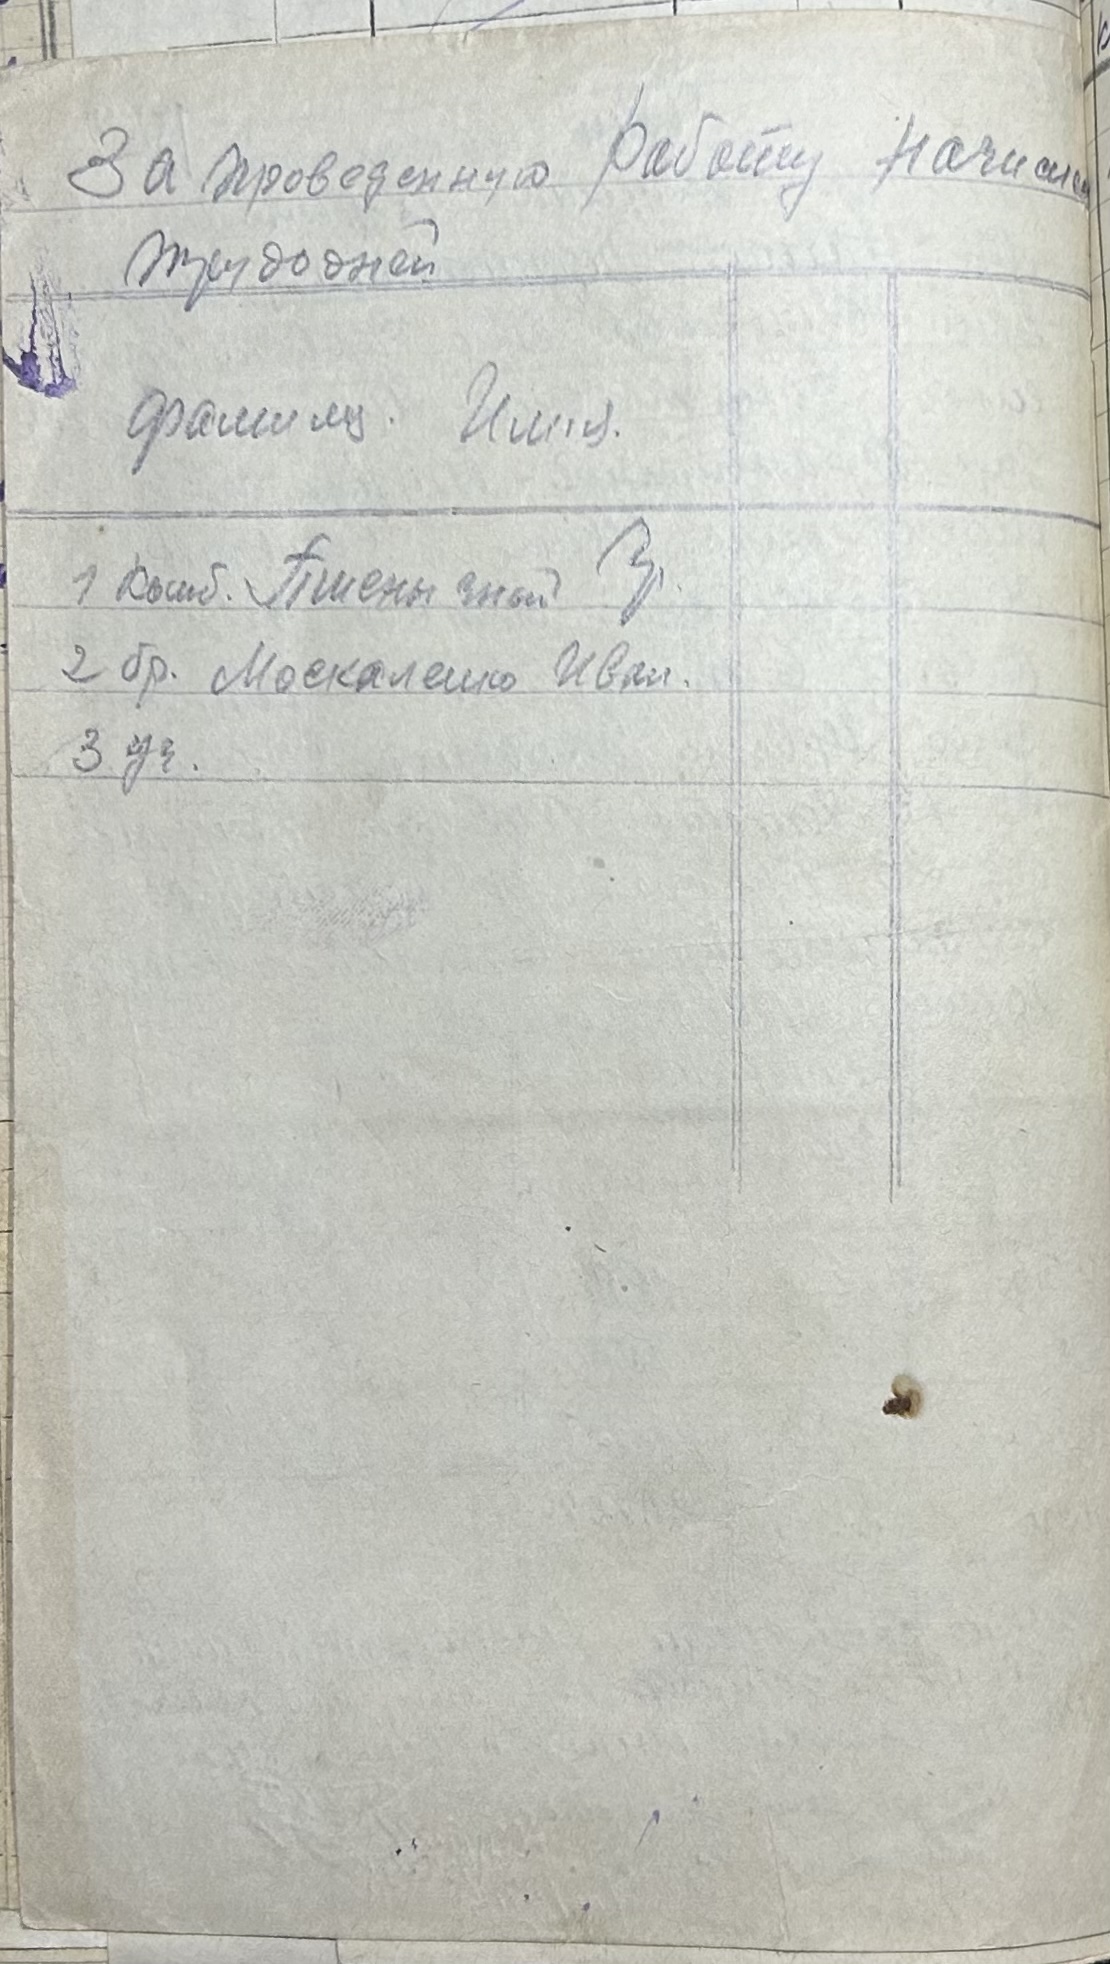 За проведенную работу начислен
трудодней
Фамилия. Имя.
1 Комб. Пшеничный
2 бр. Москаленко Иван.
3 уч.